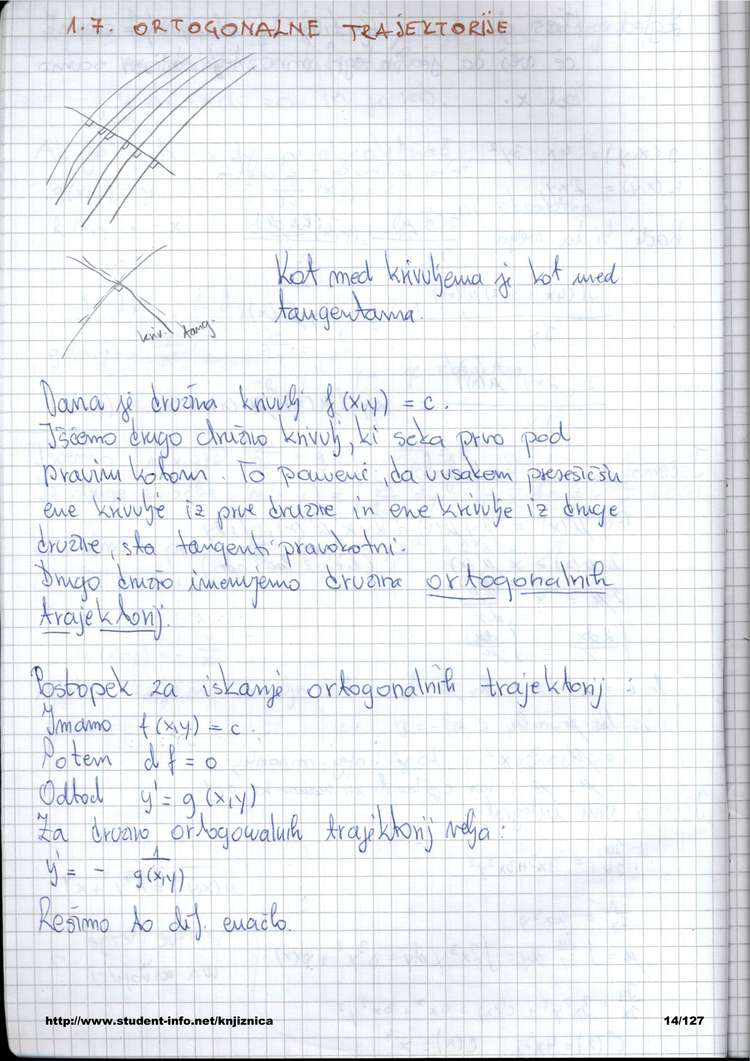 1.7. ORTOGONALNE TRAJEKTORIJE
Kot med krivuljema je kot med
tangentama.
kriv. tang.
Dana je družina krivulj f(x,y) = c.
Iščemo drugo družino krivulj, ki seka prvo pod
pravim kotom. To pomeni, da v vsakem presečišču
ene krivulje iz prve družine in ene krivulje iz druge
družine, sta tangenti pravokotni.
Drugo družino imenujemo družina ortogonalnih
trajektorij.
Postopek za iskanje ortogonalnih trajektorij :
Imamo f(x,y) = c.
Potem df = 0
Odtod y' = g(x,y)
Za družino ortogonalnih trajektorij velja :
y' = - 1/g(x,y)
Rešimo to dif. enačbo.
http://www.student-info.net/knjiznica
14/127